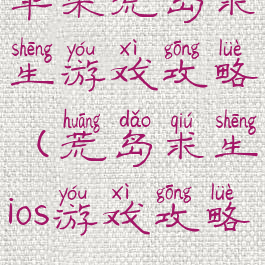 苹果荒岛求
shēng yóu xì gōng lüè
生游戏攻略
huāng dǎo qiú shēng
(荒岛求生
yóu xì gōng lüè
ios游戏攻略